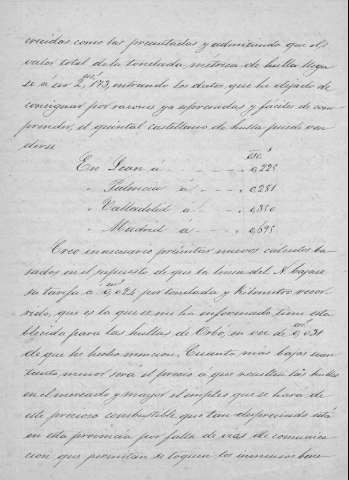 crecidas como las presentadas y admitiendo que el
valor total de la tonelada métrica de hulla llega
se á ser 2,173, entrando los datos que he dejado de
consignar por razones ya espresadas y fáciles de com
prender, el quintal castellano de hulla puede ven
dirse
esc.s
En Leon á - - - - 0,225
" Palencia á - - - - 0,281
" Valladolid á - - - - 0,350
" Madrid á - - - - 0,695
Creo innecesario presentar nuevos calculos ba
sados en el supuesto de que la linea del N. bajase
su tarifa á 0,024 por tonelada y kilometro recor
rido, que es la que se me ha informado tiene esta
blecida para las hullas de Orbó, en vez de 0,031
de que he hecho mencion. Cuanto mas bajas sean
tanto menor será el precio á que resulten las hullas
en el mercado y mayor el empleo que se hará de
este precioso combustible que tan despreciado está
en esta provincia por falta de vias de comunica
cion que permitan se logren los inmensos bene